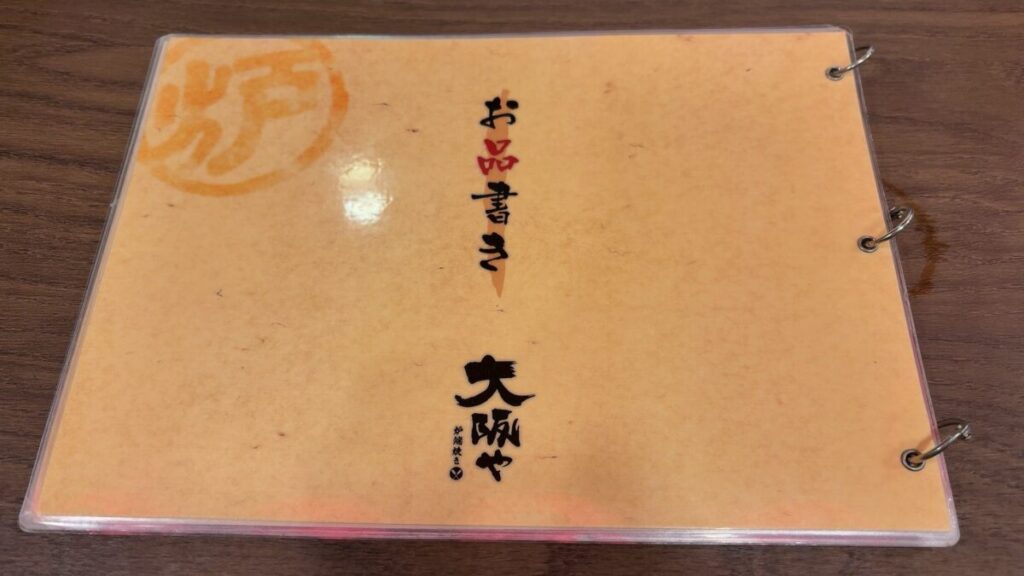 炉
お品書き
大阪や
炉端焼き